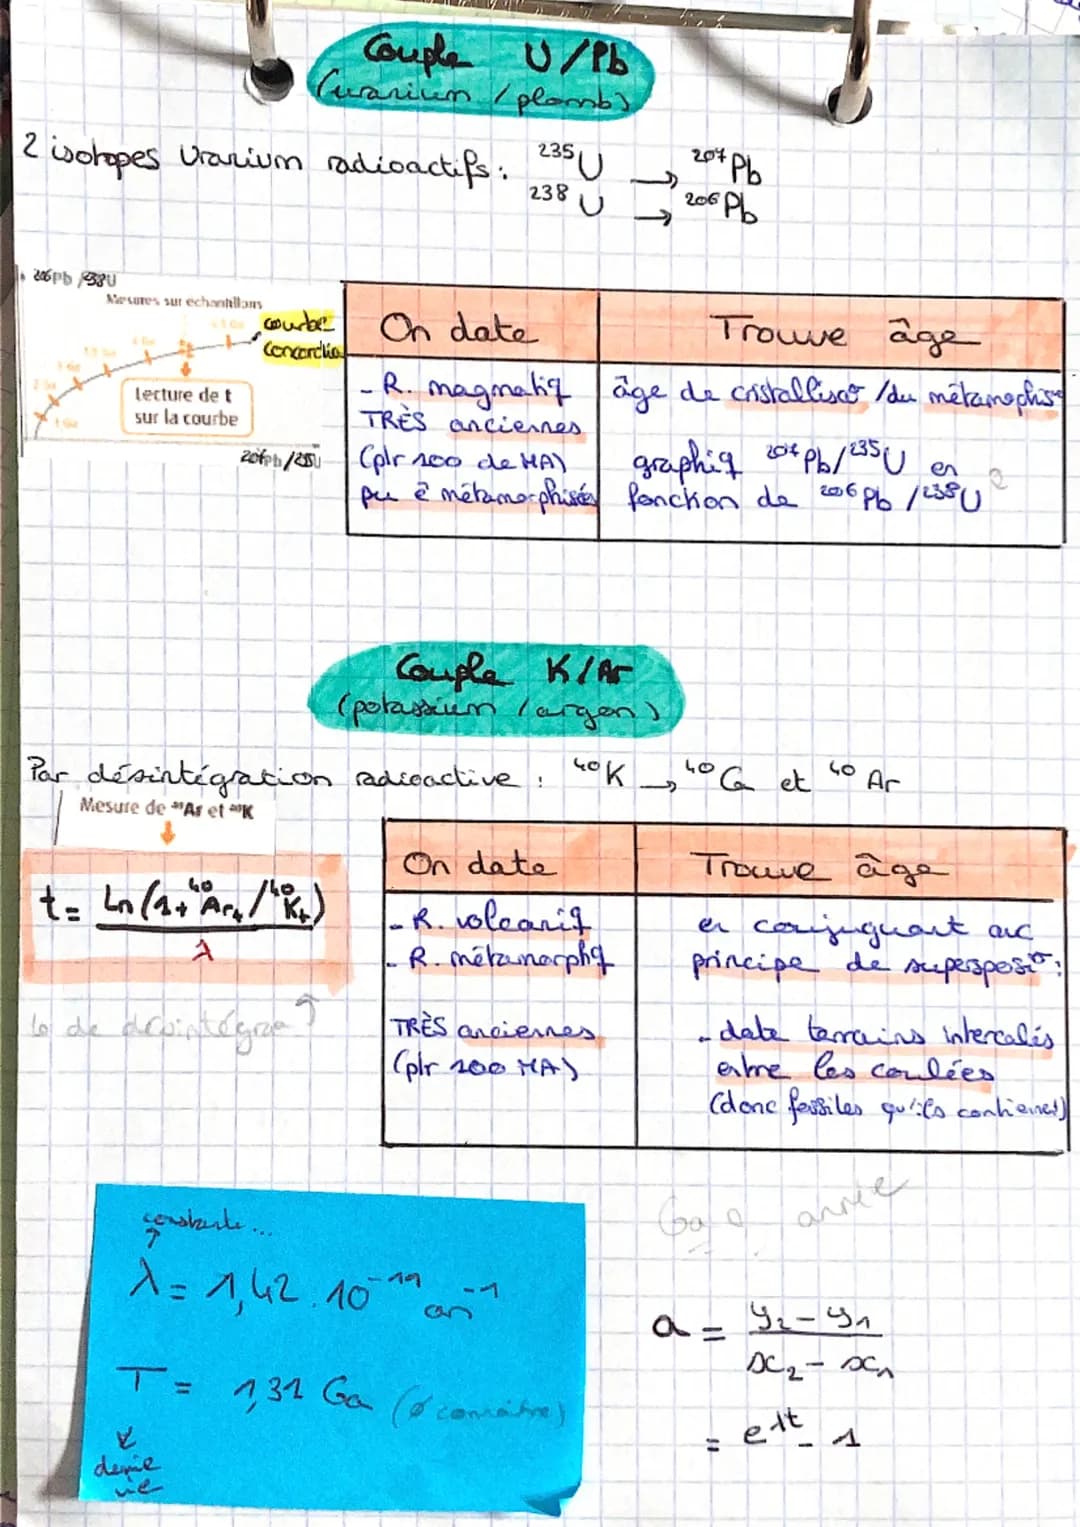 Couple U/Pb
(uranium / plomb)
2 isotopes Uranium radioactifs : ²³⁵U → ²⁰⁷Pb
²³⁸U → ²⁰⁶Pb
206Pb/238U
Mesures sur échantillons
courbe
Concordia
Lecture de t
sur la courbe
207Pb/235U
On date
Trouve âge
- R. magmatiq
TRÈS anciennes
(plr 100 de MA)
pu ê métamorphisés
âge de cristallisa° /du métamophise
graphiq ²⁰⁷Pb/²³⁵U en
fonction de ²⁰⁶Pb /²³⁸U
Couple K/Ar
(potassium / argon)
Par désintégration radioactive : ⁴⁰K → ⁴⁰Ca et ⁴⁰Ar
Mesure de ⁴⁰Ar et ⁴⁰K
t = Ln(1+ ⁴⁰Arₜ/⁴⁰Kₜ)
λ
On date
Trouve âge
- R. volcaniq
- R. métamorphq
TRÈS anciennes
(plr 100 MA)
en conjuguant avc
principe de superposi° :
- date terrains intercalés
entre les coulées
(donc fossiles qu'ils contiennent)
constante ...
λ = 1,42.10⁻¹¹ an⁻¹
T = 1,31 Ga (Ø connaître)
demie
vie
Ga année
a = y₂ - y₁
x₂ - x₁
= e^λt - 1